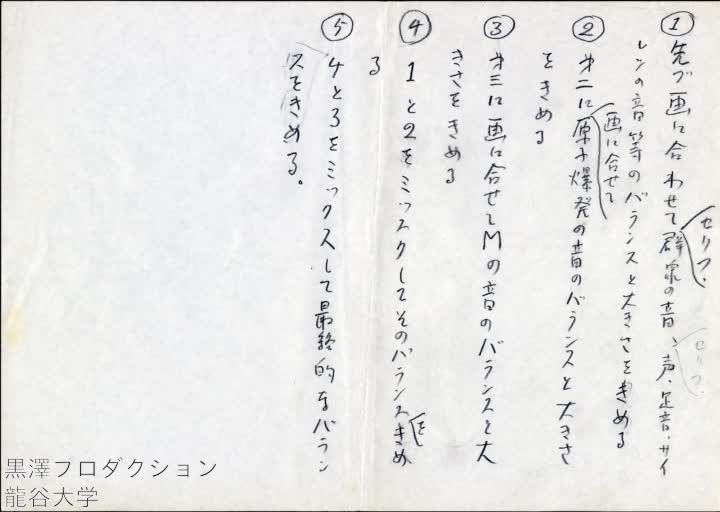 ① 先づ画に合わせて群衆の音、声、足音、サイ
セリフ、
セリフ、
レンの音等のバランスと大きさをきめる
② 才二に原子爆発の音のバランスと大きさ
画に合せて
をきめる
③ 才三に画に合せてMの音のバランスと大
きさをきめる
④ 1と2をミックスしてそのバランスきめ
を
る
⑤ 4と3をミックスして最終的なバラン
スをきめる。
黒澤プロダクション
龍谷大学